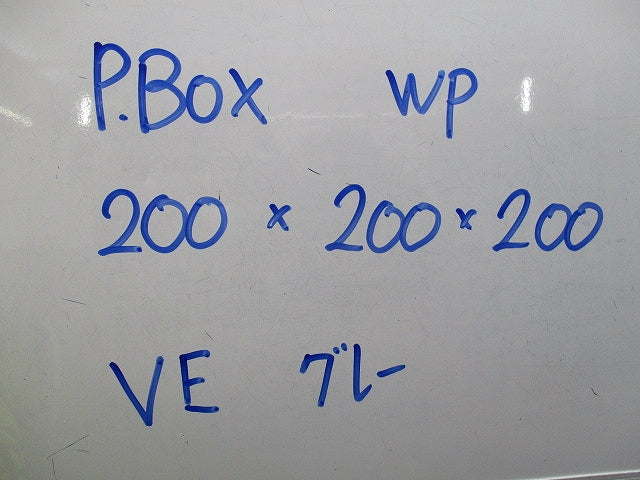 P.Box WP
200 x 200 x 200
VE グレー